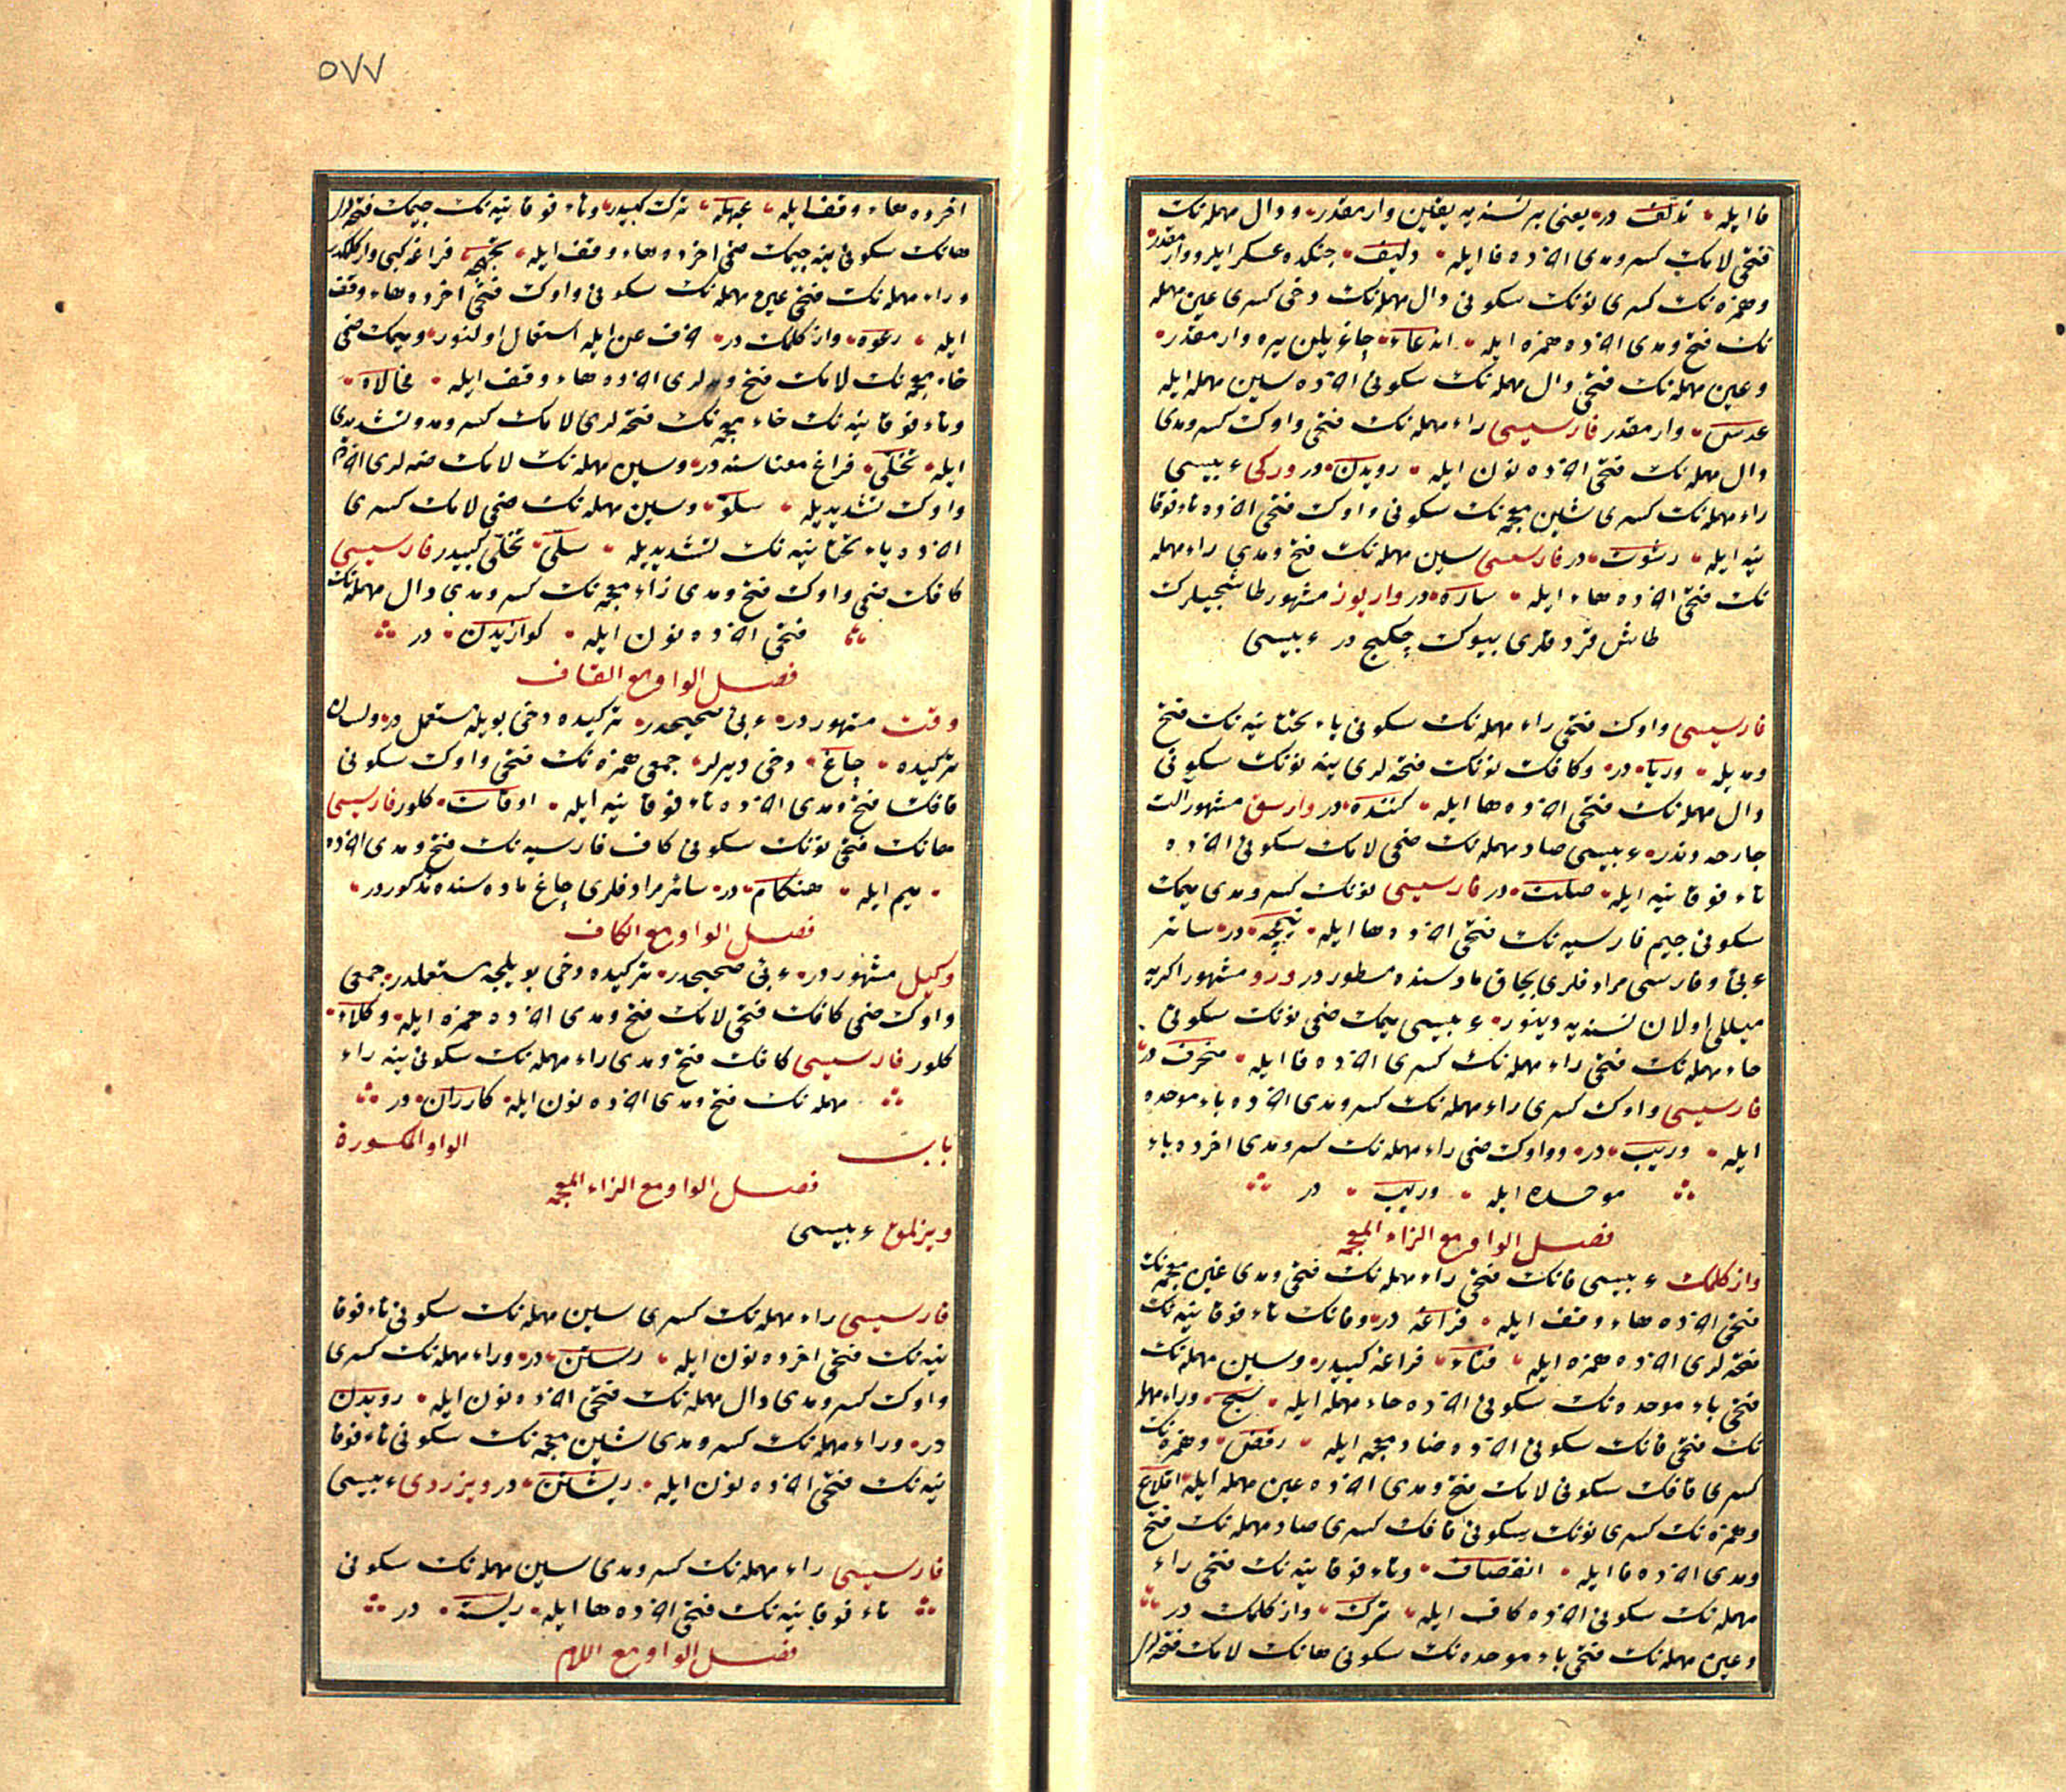 فا ایله تدلف در یعنی بر نسنه یه یقین وارمقدر ودال مهمله نك
فتحی لامك كسر ومدی اخرده فا ایله دلیف جنكده عسكر ایلرو وارمقدر
وهمزه نك كسری نونك سكونی دال مهمله نك دخی كسری عین مهمله
نك فتح ومدی اخرده همزه ایله اندعاء چاغریلن یره وارمقدر
وعین مهمله نك فتحی دال مهمله نك سكونی اخرده سین مهمله ایله
عدس وارمقدر فارسیسی راء مهمله نك فتحی واوك كسر ومدی
دال مهمله نك فتحی اخرده نون ایله رویدن در وركی عربیسی
راء مهمله نك كسری شین معجمه نك سكونی واوك فتحی اخرده تاء فوقا
نیه ایله رشوت در فارسیسی سین مهمله نك فتح ومدی راء مهمله
نك فتحی اخرده هاء ایله ساره در واریوز مشهور طاشجیلرك
طاش قردقلری بیوك چكیج در عربیسی
فارسیسی واوك فتحی راء مهمله نك سكونی یاء تحتانیه نك فتح
ومدیله وریا در وكافك نونك فتحه لری ینه نونك سكونی
دال مهمله نك فتحی اخرده ها ایله كننده در وارسق مشهور الت
جارحه وندر عربیسی صاد مهمله نك ضمی لامك سكونی اخرده
تاء فوقانیه ایله صلت در فارسیسی نونك كسر ومدی میمك
سكونی جیم فارسیه نك فتحی اخرده ها ایله نیمچه در سائر
عربی وفارسی مرادفلری بچاق ماده سنده مسطور در ورو مشهور اكریه
میللی اولان نسنه یه دینور عربیسی میمك ضمی نونك سكونی
حاء مهمله نك فتحی راء مهمله نك كسری اخرده فا ایله منحرف در
فارسیسی واوك كسری راء مهمله نك كسر ومدی اخرده باء موحده
ایله وریب در وواوك ضمی راء مهمله نك كسر ومدی اخرده باء
موحده ایله وریب در
فصل الواو مع الزاء المعجمه
وازكلمك عربیسی فانك فتحی راء مهمله نك فتحی ومدی غین معجمه نك
فتحی اخرده هاء وقف ایله فراغه در وفانك تاء فوقانیه نك
فتحه لری اخرده همزه ایله فتاء فراغه كبیدر وسین مهمله نك
فتحی باء موحده نك سكونی اخرده حاء مهمله ایله سبح وراء مهمله
نك فتحی فانك سكونی اخرده ضاد معجمه ایله رفض وهمزه نك
كسری قافك سكونی لامك فتح ومدی اخرده عین مهمله ایله اقلاع
وهمزه نك كسری نونك سكونی قافك كسری صاد مهمله نك فتح
ومدی اخرده فا ایله انقصاف وتاء فوقانیه نك فتحی راء
مهمله نك سكونی اخرده كاف ایله ترك وازكلمك در
وعین مهمله نك فتحی باء موحده نك سكونی هانك لامك فتحه لری
٥٧٧
اخرده هاء وقف ایله عبهله ترك كبیدر وتاء فوقانیه نك جیمك فتحه لری
هانك سكونی ینه جیمك ضمی اخرده هاء وقف ایله تجهجه فراغه كبی وازكلمكدر
وراء مهمله نك فتحی عین مهمله نك سكونی واوك فتحی اخرده هاء وقف
ایله رعوه وازكلمك در اخرف عن ایله استعمال اولنور ومیمك ضمی
خاء معجمه نك لامك فتح ومدلری اخرده هاء وقف ایله مخالاه
وتاء فوقانیه نك خاء معجمه نك فتحه لری لامك كسر ومد وتشدیدی
ایله تخلی فراغ معناسنه در وسین مهمله نك لامك ضمه لری اخرده
واوك تشدیدیله سلو وسین مهمله نك ضمی لامك كسری
اخرده یاء تحتانیه نك تشدیدیله سلی تخلی كبیدر فارسیسی
كافك ضمی واوك فتح ومدی زاء معجمه نك كسر ومدی دال مهمله نك
فتحی اخرده نون ایله كوازیدن در
فصل الواو مع القاف
وقت مشهور در عربی صحیحدر تركیده دخی بویله مستعمل در ولسان
تركیده چاغ دخی دیرلر جمعی همزه نك فتحی واوك سكونی
قافك فتح ومدی اخرده تاء فوقانیه ایله اوقات كلور فارسیسی
هانك فتحی نونك سكونی كاف فارسیه نك فتح ومدی اخرده
میم ایله هنكام در سائر مرادفلری چاغ ماده سنده مذكوردر
فصل الواو مع الكاف
وكیل مشهور در عربی صحیحدر تركیده دخی بویلجه مستعملدر جمعی
واوك ضمی كافك فتحی لامك فتح ومدی اخرده همزه ایله وكلاء
كلور فارسیسی كافك فتح ومدی راء مهمله نك سكونی ینه راء
مهمله نك فتح ومدی اخرده نون ایله كارران در
باب الواو المكسورة
فصل الواو مع الزاء المعجمه
ویزلمق عربیسی
فارسیسی راء مهمله نك كسری سین مهمله نك سكونی تاء فوقا
نیه نك فتحی اخرده نون ایله رستن در وراء مهمله نك كسری
واوك كسر ومدی دال مهمله نك فتحی اخرده نون ایله رویدن
در وراء مهمله نك كسر ومدی شین معجمه نك سكونی تاء فوقا
نیه نك فتحی اخرده نون ایله ریشتن در ویزردی عربیسی
فارسیسی راء مهمله نك كسر ومدی سین مهمله نك سكونی
تاء فوقانیه نك فتحی اخرده ها ایله ریسته در
فصل الواو مع اللام